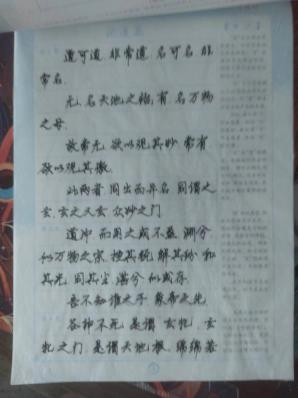 道可道 非常道 名可名 非
常名.
无, 名天地之始; 有, 名万物
之母.
故常无 欲以观其妙 常有
欲以观其徼.
此两者 同出而异名 同谓之
玄. 玄之又玄 众妙之门
道冲 而用之或不盈 渊兮
似万物之宗. 挫其锐 解其纷 和
其光 同其尘 湛兮 似或存.
吾不知谁之子 象帝之先
谷神不死 是谓 玄牝. 玄
牝之门 是谓天地根. 绵绵若